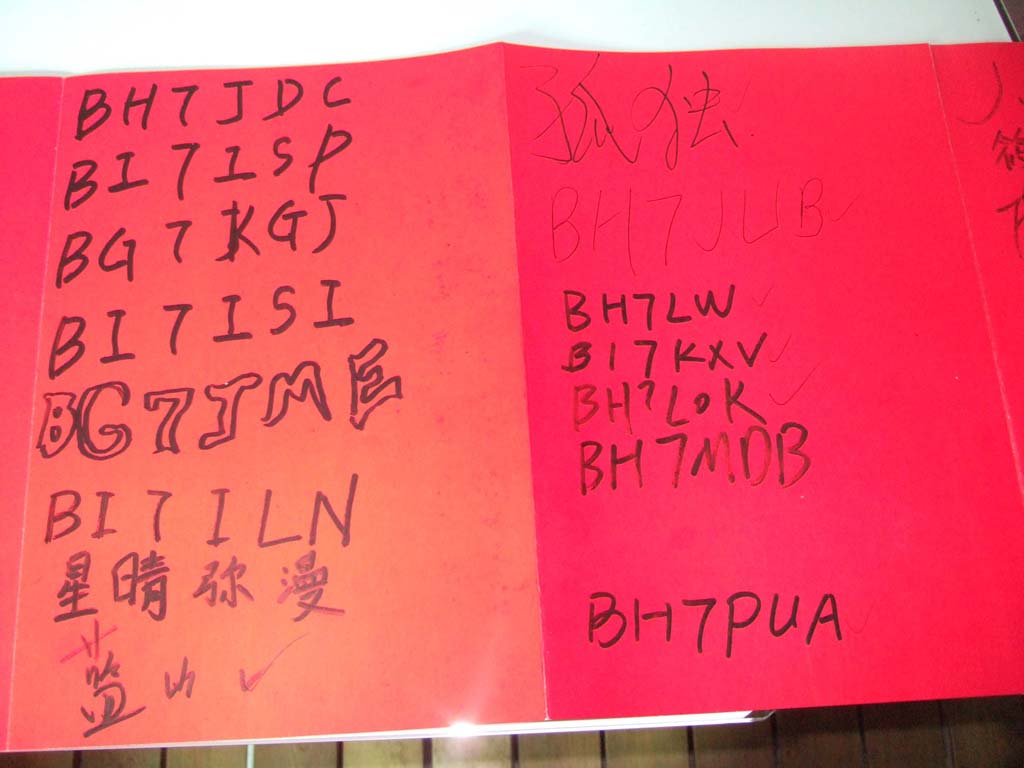 BH7JDC
BI7ISP
BG7KGJ
BI7ISI
BG7JME
BI7ILN
星晴弥漫
蓝山
孤独
BH7JUB
BH7LW
BI7KXV
BH7LOK
BH7MDB
BH7PUA